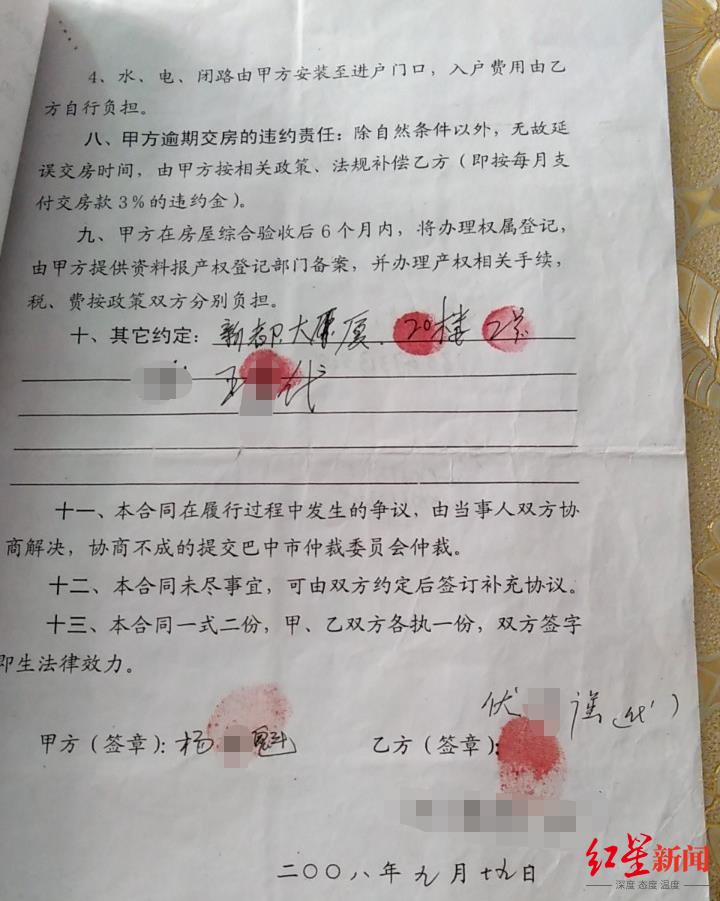 4、水、电、闭路由甲方安装至进户门口，入户费用由乙
方自行负担。
八、甲方逾期交房的违约责任：除自然条件以外，无故延
误交房时间，由甲方按相关政策、法规补偿乙方（即按每月支
付交房款3%的违约金）。
九、甲方在房屋综合验收后6个月内，将办理权属登记，
由甲方提供资料报产权登记部门备案，并办理产权相关手续，
税、费按政策双方分别负担。
十、其它约定：新都大厦 20楼 2号
王 代
十一、本合同在履行过程中发生的争议，由当事人双方协
商解决，协商不成的提交巴中市仲裁委员会仲裁。
十二、本合同未尽事宜，可由双方约定后签订补充协议。
十三、本合同一式二份，甲、乙双方各执一份，双方签字
即生法律效力。
伏 （代）
甲方（签章）：杨 魁 乙方（签章）：
二〇〇八年九月十九日
红星新闻
深度 态度 温度